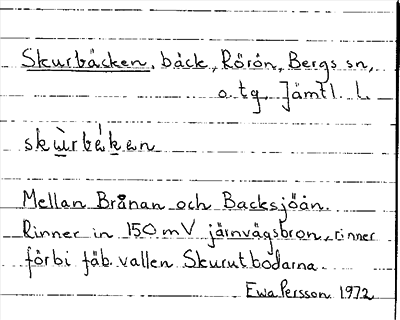 Skurbäcken, bäck, Rörön, Bergs sn,
o. tg. Jämtl. L
skùrbékan
Mellan Brånan och Backsjöån.
Rinner in 150 m V järnvägsbron, rinner
förbi fäb.vallen Skurutbodarna.
Ewa Persson 1972